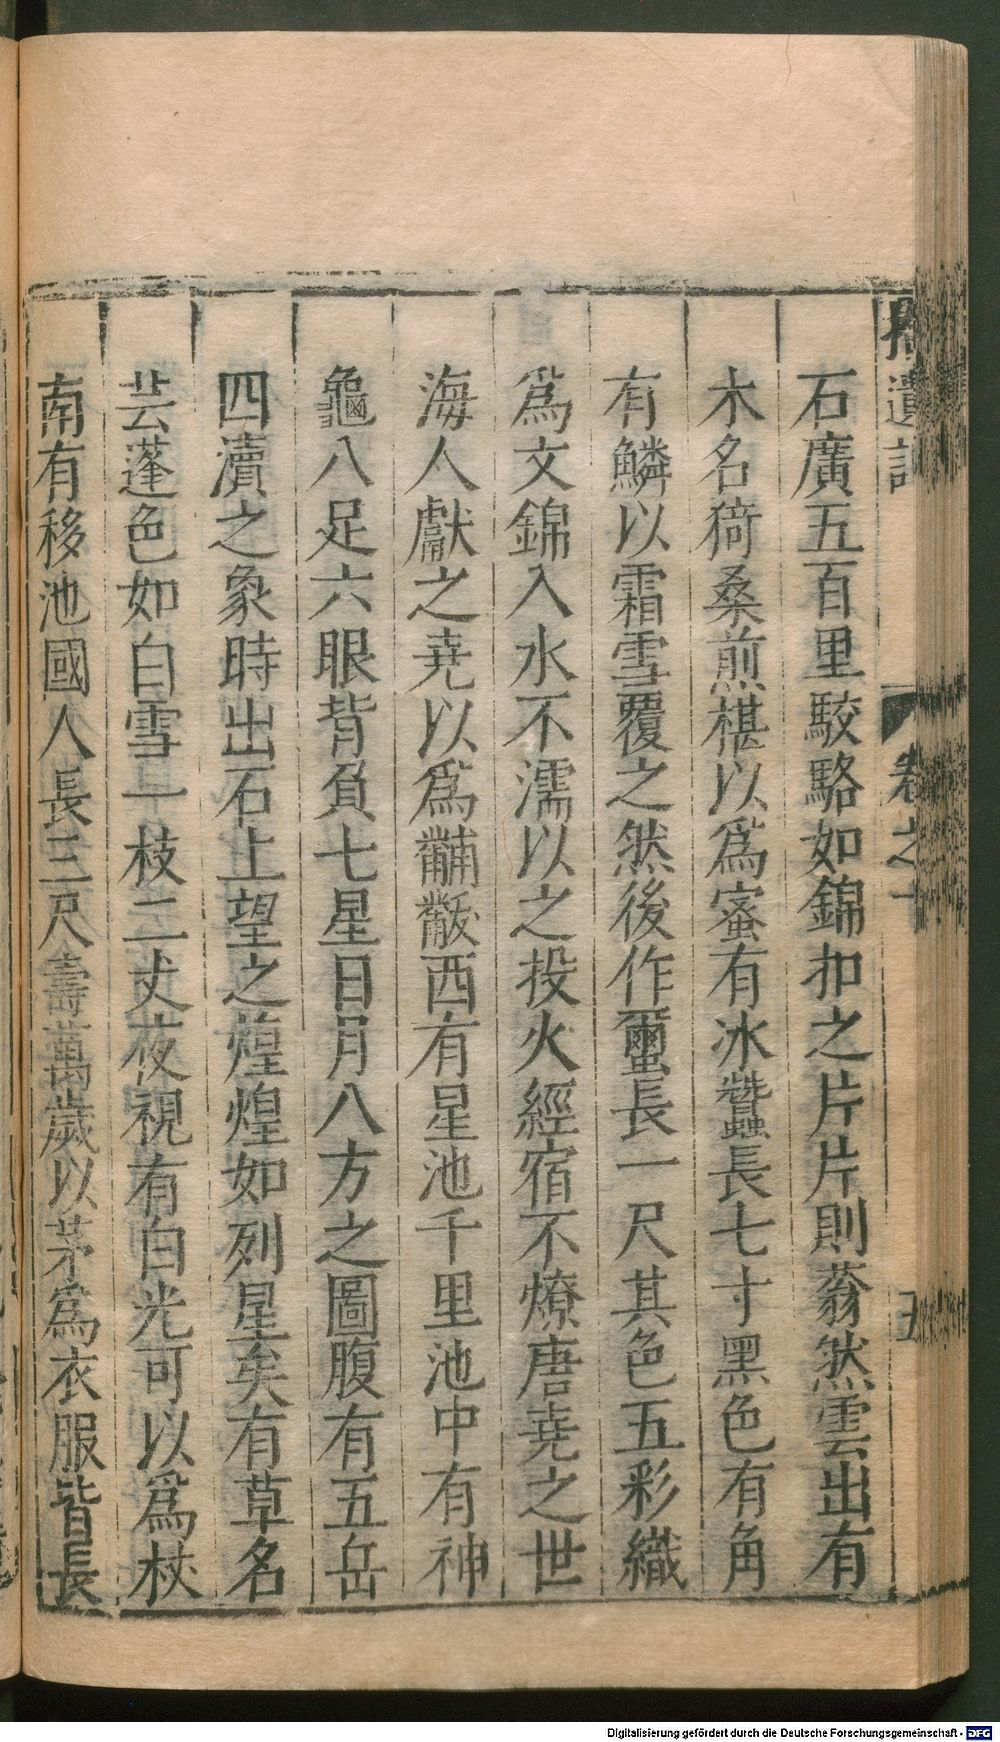 石廣五百里駮駱如錦扣之片片則蓊然雲出有
木名猗桑煎椹以爲蜜有冰蠶長七寸黑色有角
有鱗以霜雪覆之然後作蠒長一尺其色五彩織
爲文錦入水不濡以之投火經宿不燎唐堯之世
海人獻之堯以爲黼黻西有星池千里池中有神
龜八足六眼背負七星日月八方之圖腹有五岳
四瀆之象時出石上望之煌煌如列星矣有草名
芸蓬色如白雪一枝二丈夜視有白光可以爲杖
南有移池國人長三尺壽萬歲以茅爲衣服皆長
遺記
卷之十
五
Digitalisierung gefördert durch die Deutsche Forschungsgemeinschaft - DFG